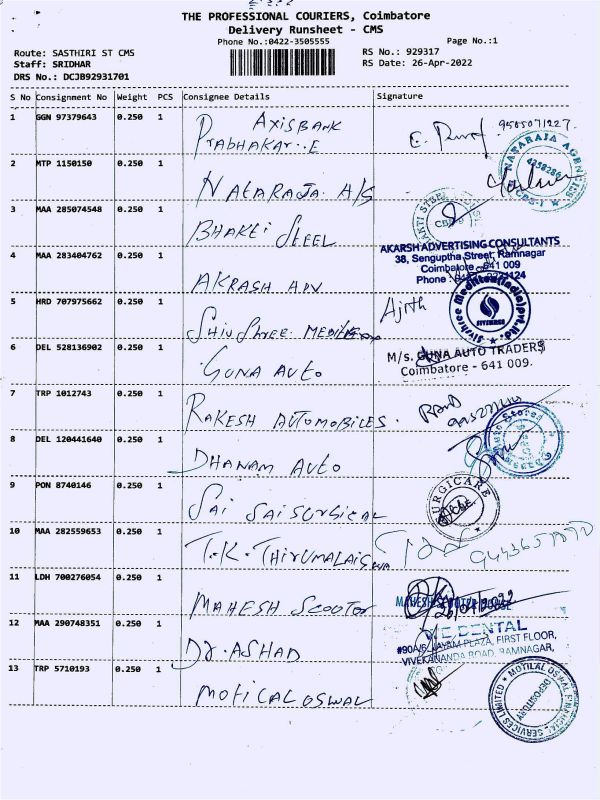 THE PROFESSIONAL COURIERS, Coimbatore
Delivery Runsheet - CMS
Phone No.:0422-3505555
Page No.:1
Route: SASTHIRI ST CMS
Staff: SRIDHAR
DRS No.: DCJB92931701
RS No.: 929317
RS Date: 26-Apr-2022
S No Consignment No Weight PCS Consignee Details Signature
1 GGN 97379643 0.250 1 AXISBANK
PRABHAKAR..E
2 MTP 1150150 0.250 1 NATARAJA A/S
NATARAJA AGENCIES
3 MAA 285074548 0.250 1 BHAKTI STEEL
4 MAA 283404762 0.250 1 AKRASH ADV
AKARSH ADVERTISING CONSULTANTS
38, Senguptha Street, Ramnagar
Coimbatore - 641 009
Phone :
5 HRD 707975662 0.250 1 SHIV SHREE MEDITEX
Ajith
Sivhree Meditex(India)pvt.ltd.
SIVSHREE
6 DEL 528136902 0.250 1 GUNA AUTO
M/s. GUNA AUTO TRADERS
Coimbatore - 641 009.
7 TRP 1012743 0.250 1 RAKESH AUTOMOBILES.
8 DEL 120441640 0.250 1 DHANAM AUTO
Auto Stores
9 PON 8740146 0.250 1 SAI SAI SURGICAL
SURGICARE
10 MAA 282559653 0.250 1 T.K. THIRUMALAISWA
11 LDH 700276054 0.250 1 MAHESH SCOOTOR
MAHESH SCOOTER HOUSE
12 MAA 290748351 0.250 1 DR.ASHAD
DENTAL
#90A/6, JAYAM PLAZA, FIRST FLOOR,
VIVEKANANDA ROAD, RAMNAGAR,
13 TRP 5710193 0.250 1 MOTICAL OSWAL
MOTILAL OSWAL FINANCIAL SERVICES LIMITED
DEPOSITORY